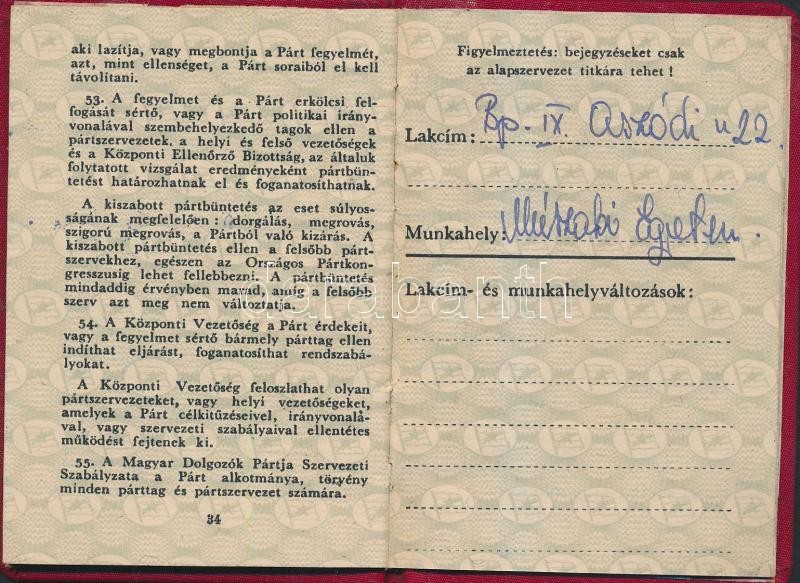 aki lazítja, vagy megbontja a Párt fegyelmét,
azt, mint ellenséget, a Párt soraiból el kell
távolítani.
53. A fegyelmet és a Párt erkölcsi fel-
fogását sértő, vagy a Párt politikai irány-
vonalával szembehelyezkedő tagok ellen a
pártszervezetek, a helyi és felső vezetőségek
és a Központi Ellenőrző Bizottság, az általuk
folytatott vizsgálat eredményeként pártbün-
tetést határozhatnak el és foganatosíthatnak.
A kiszabott pártbüntetés az eset súlyos-
ságának megfelelően: dorgálás, megrovás,
szigorú megrovás, a Pártból való kizárás. A
kiszabott pártbüntetés ellen a felsőbb párt-
szervekhez, egészen az Országos Pártkon-
gresszusig lehet fellebbezni. A pártbüntetés
mindaddig érvényben marad, amíg a felsőbb
szerv azt meg nem változtatja.
54. A Központi Vezetőség a Párt érdekeit,
vagy a fegyelmet sértő bármely párttag ellen
indíthat eljárást, foganatosíthat rendszabá-
lyokat.
A Központi Vezetőség feloszlathat olyan
pártszervezeteket, vagy helyi vezetőségeket,
amelyek a Párt célkitűzéseivel, irányvonalá-
val, vagy szervezeti szabályaival ellentétes
működést fejtenek ki.
55. A Magyar Dolgozók Pártja Szervezeti
Szabályzata a Párt alkotmánya, törvény
minden párttag és pártszervezet számára.
34
Figyelmeztetés: bejegyzéseket csak
az alapszervezet titkára tehet!
Lakcím: Bp. IX. Aszódi u 22.
Munkahely: Műszaki Egyetem.
Lakcím- és munkahelyváltozások:
darabanth